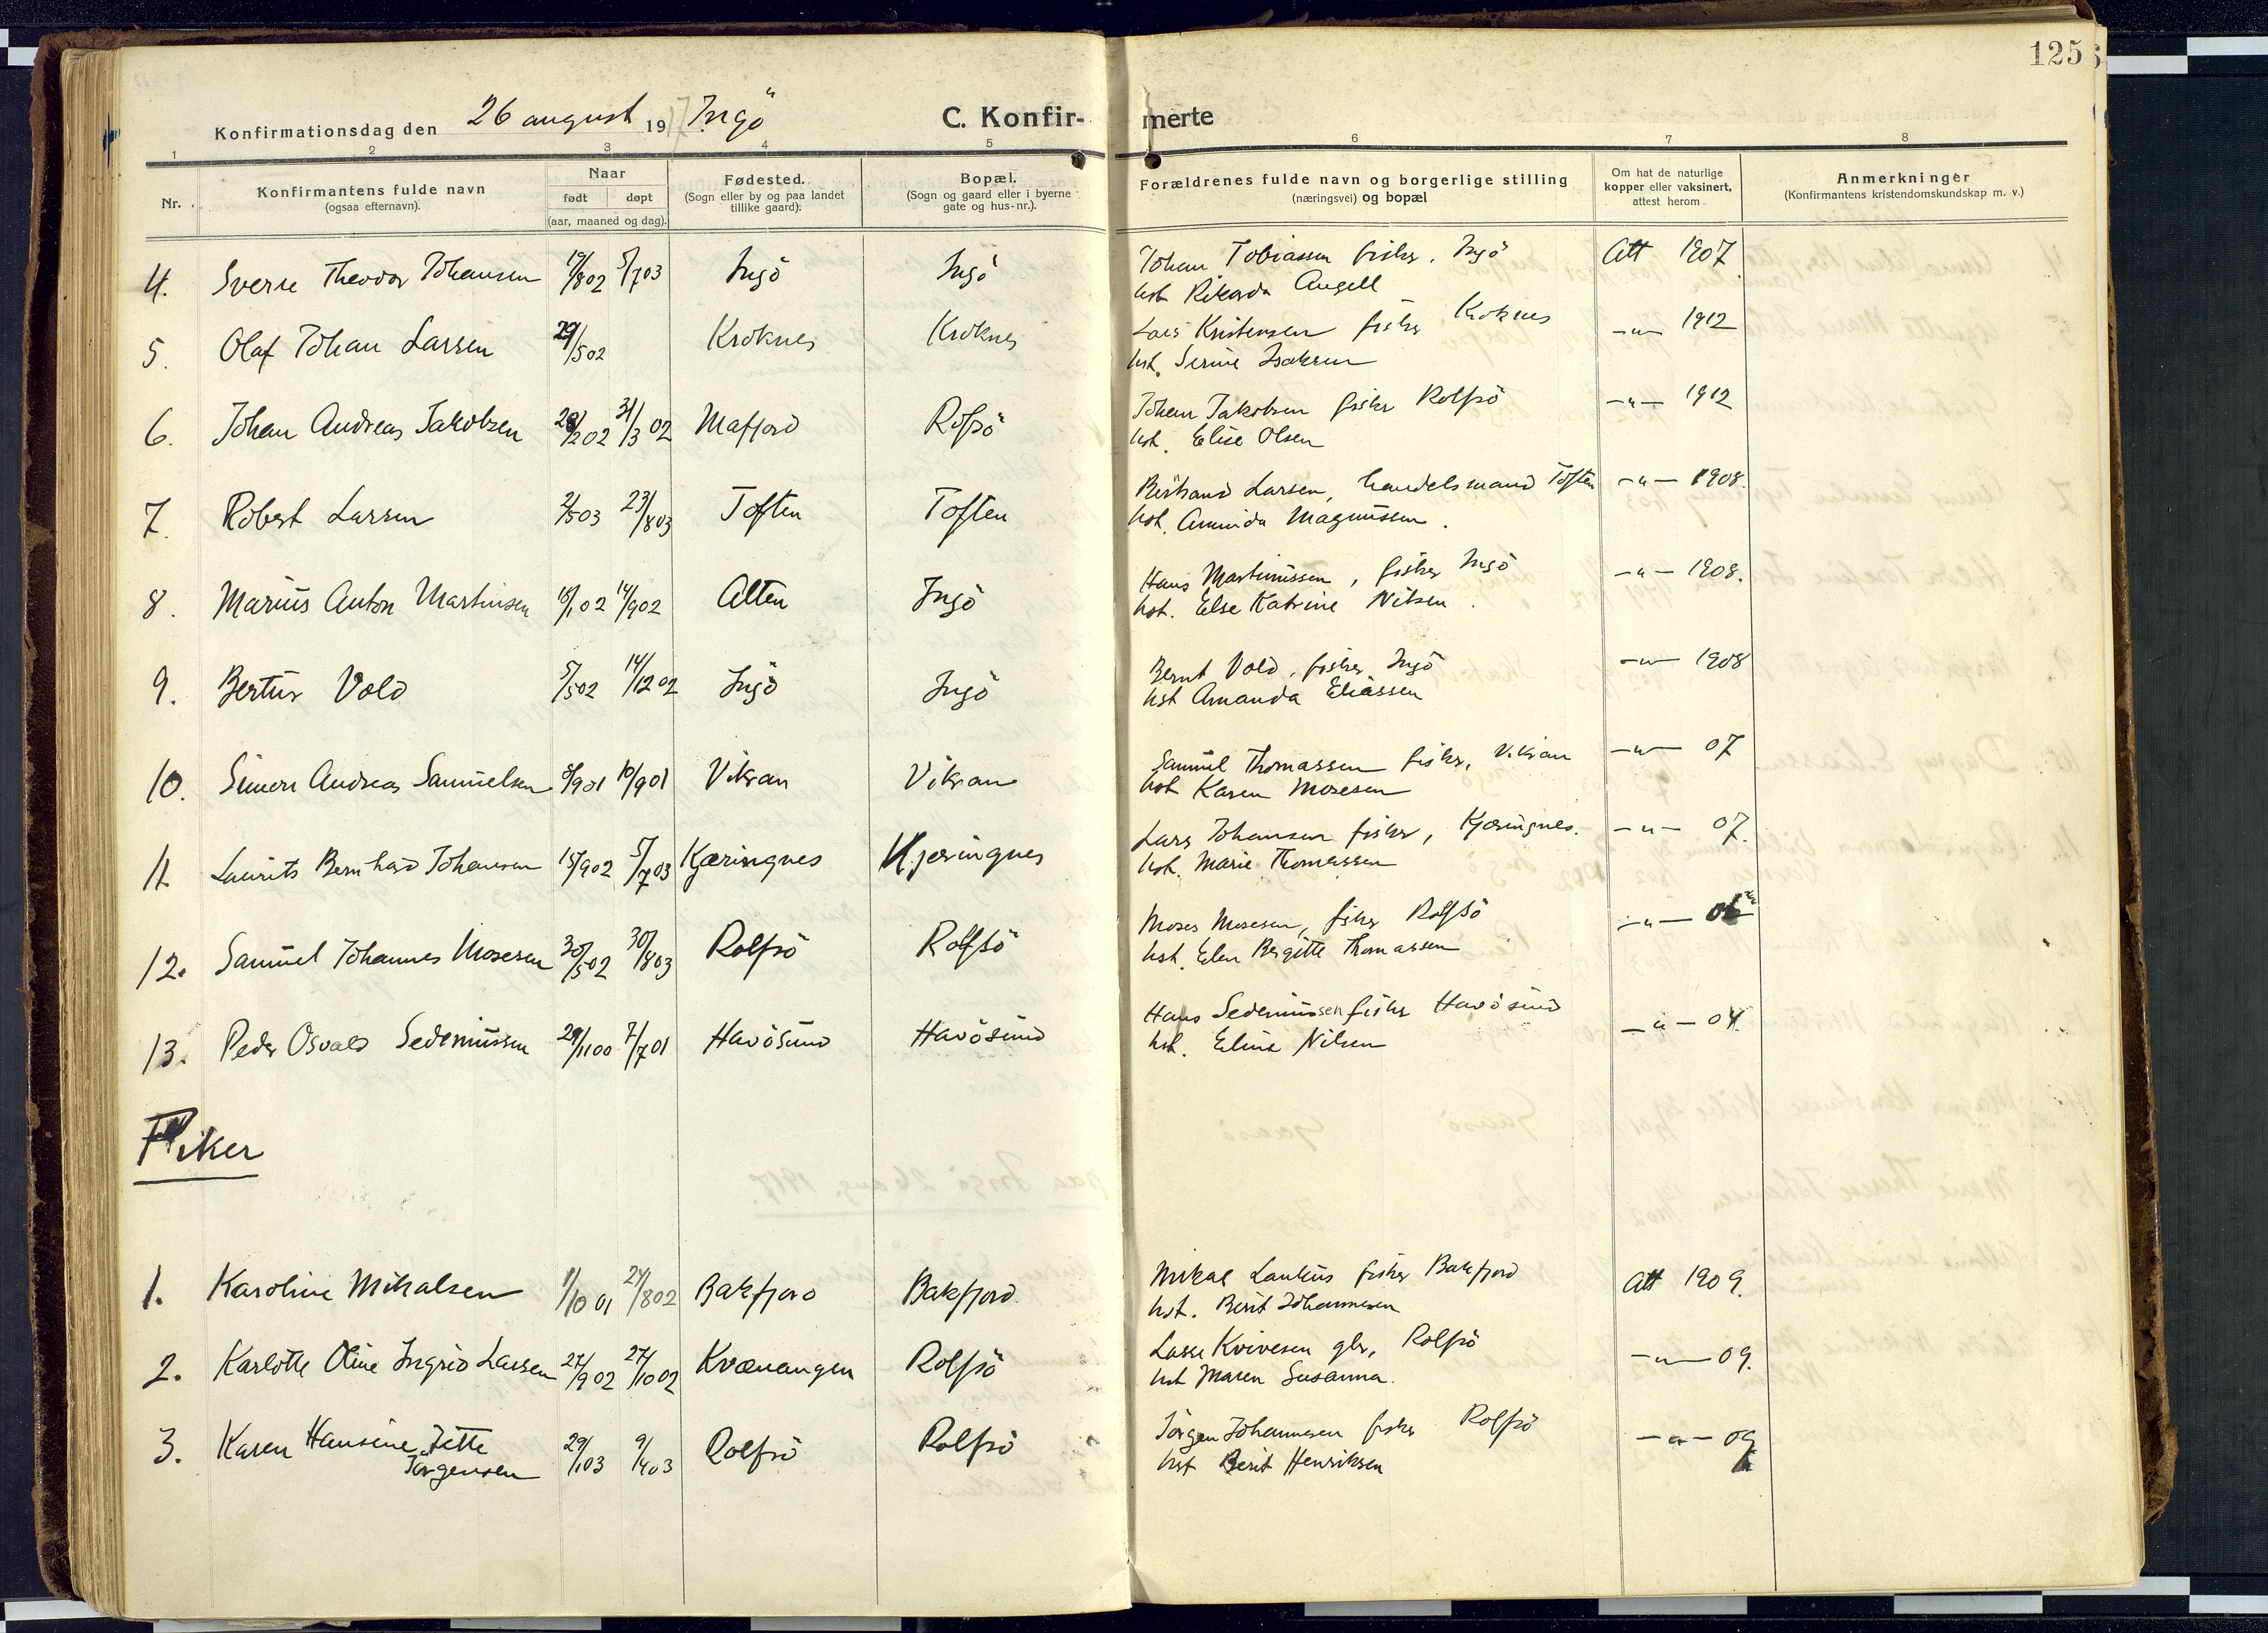 125
Konfirmationsdag den 26 august 1917 Ingö C. Konfirmerte
1 2 3 4 5 6 7 8
Nr. Konfirmantens fulde navn (ogsaa efternavn). Naar født døpt (aar, maaned og dag). Fødested. (Sogn eller by og paa landet tillike gaard). Bopæl. (Sogn og gaard eller i byerne gate og hus-nr.). Forældrenes fulde navn og borgerlige stilling (næringsvei) og bopæl Om hat de naturlige kopper eller vaksinert, attest herom Anmerkninger (Konfirmantens kristendomskundskap m. v.)
4. Sverre Theodor Johansen 19/802 5/703 Ingö Ingö Johan Tobiassen fisker, Ingö Att 1907
hst Rikarda Angell
5. Olaf Johan Larsen 29/502 Kroknes Kroknes Lars Kristensen fisker Kroknes -"- 1912
hst. Serine Isaksen
6. Johan Andreas Jakobsen 28/202 31/3 02 Mafjord Rolfsö Johan Jakobsen fisker Rolfsö -"- 1912
hst. Elise Olsen
7. Robert Larsen 2/503 23/803 Toften Toften Bertrand Larsen, handelsmand Toften -"- 1908.
hst. Aminda Magnussen.
8. Marius Anton Martinsen 18/102 14/902 Alten Ingö Hans Martinussen, fisker Ingö -"- 1908.
hst. Else Katrine Nilsen.
9. Bertus Vold 5/502 14/1202 Ingö Ingö Bernt Vold, fisker, Ingö -"- 1908
hst Amanda Eliassen
10. Simon Andreas Samuelsen 8/901 10/901 Vikran Vikran Samuel Thomassen fisker, Vikran -"- 07
hst Karen Mosesen
11. Laurits Bernhard Johansen 15/902 5/703 Kjæringnes Kjæringnes Lars Johansen fisker, Kjæringnes. -"- 07.
hst. Marie Thomassen
12. Samuel Johannes Mosesen 30/502 30/803 Rolfsö Rolfsö Moses Mosesen, fisker Rolfsö -"-
hst. Elen Bergitte Thomassen
13. Peder Osvald Sedeniussen 29/1100 7/701 Havösund Havösund Hans Sedeniussen fisker Havösund -"- 04.
hst. Eline Nilsen
Piker
1. Karoline Mikalsen 1/10 01 24/802 Bakfjord Bakfjord. Mikal Lankius fisker Bakfjord Att 1909.
hst. Berit Johannesen
2. Karlotte Oline Ingrid Lassen 27/902 27/1002 Kvænangen Rolfsö Lasse Kvivesen gbr, Rolfsö -"- 09.
hst Maren Susanna.
3. Karen Hansine Jette Jörgensen 29/103 9/403 Rolfsö Rolfsö Jörgen Johannesen fisker Rolfsö -"- 09
hst Berit Henriksen